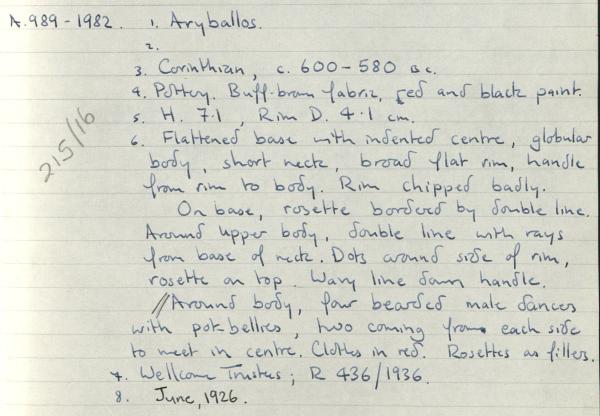 A.989-1982. 1. Aryballos.
2.
3. Corinthian, c. 600-580 B.C.
4. Pottery. Buff-brown fabric, red and black paint.
5. H. 7.1, Rim D. 4.1 cm.
215/16
6. Flattened base with indented centre, globular
body, short neck, broad flat rim, handle
from rim to body. Rim chipped badly.
On base, rosette bordered by double line.
Around upper body, double line with rays
from base of neck. Dots around side of rim,
rosette on top. Wavy line down handle.
//Around body, four bearded male dancers
with potbellies, two coming from each side
to meet in centre. Clothes in red. Rosettes as fillers.
7. Wellcome Trustees; R 436/1936.
8. June, 1926.